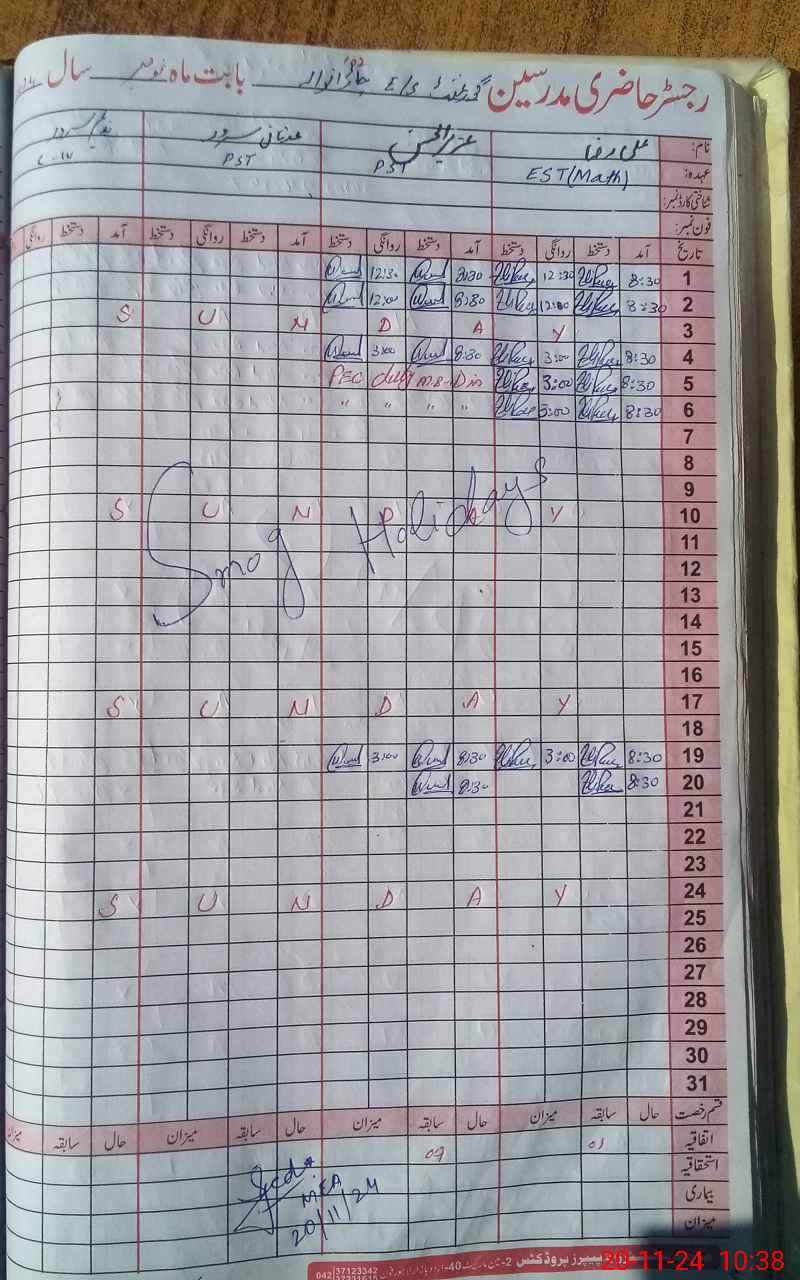 رجسٹر حاضری مدرسین گورنمنٹ E/S بابت ماہ نومبر سال
نام: علی رضا عزیز الحسن عدنان سرور نعیم سرور
عہدہ: EST (Math) PST PST
شناختی کارڈ نمبر:
فون نمبر:
تاریخ آمد دستخط روانگی دستخط آمد دستخط روانگی دستخط آمد دستخط روانگی دستخط آمد دستخط روانگی
1 8:30 12:30 8:30 12:30
2 8:30 12:00 8:30 12:00
3 S U N D A Y
4 8:30 3:00 8:30 3:00
5 8:30 3:00 PEC duty
6 8:30 3:00 " " " "
7
8
9
Smog Holidays
10 S U N D A Y
11
12
13
14
15
16
17 S U N D A Y
18
19 8:30 3:00 8:30 3:00
20 8:30 8:30
21
22
23
24 S U N D A Y
25
26
27
28
29
30
31
قسم رخصت حال سابقہ میزان حال سابقہ میزان حال سابقہ میزان حال سابقہ میزان
اتفاقیہ 01 09
استحقاقیہ
بیماری
میزان
MEA
20/11/24
پیپرز پروڈکٹس 2-مین مارکیٹ 40-اردو بازار لاہور فون 042 37123342
20-11-24 10:38